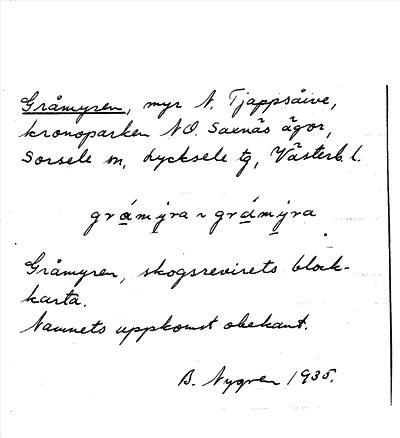 Gråmyren, myr N. Tjappsåive,
kronoparken NO. Saenäs ägor,
Sorsele sn, Lycksele tg, Västerb. l.
grámýra ~ grámýra
Gråmyren, skogsrevirets block-
karta.
Namnets uppkomst obekant.
B. Nygren 1935.